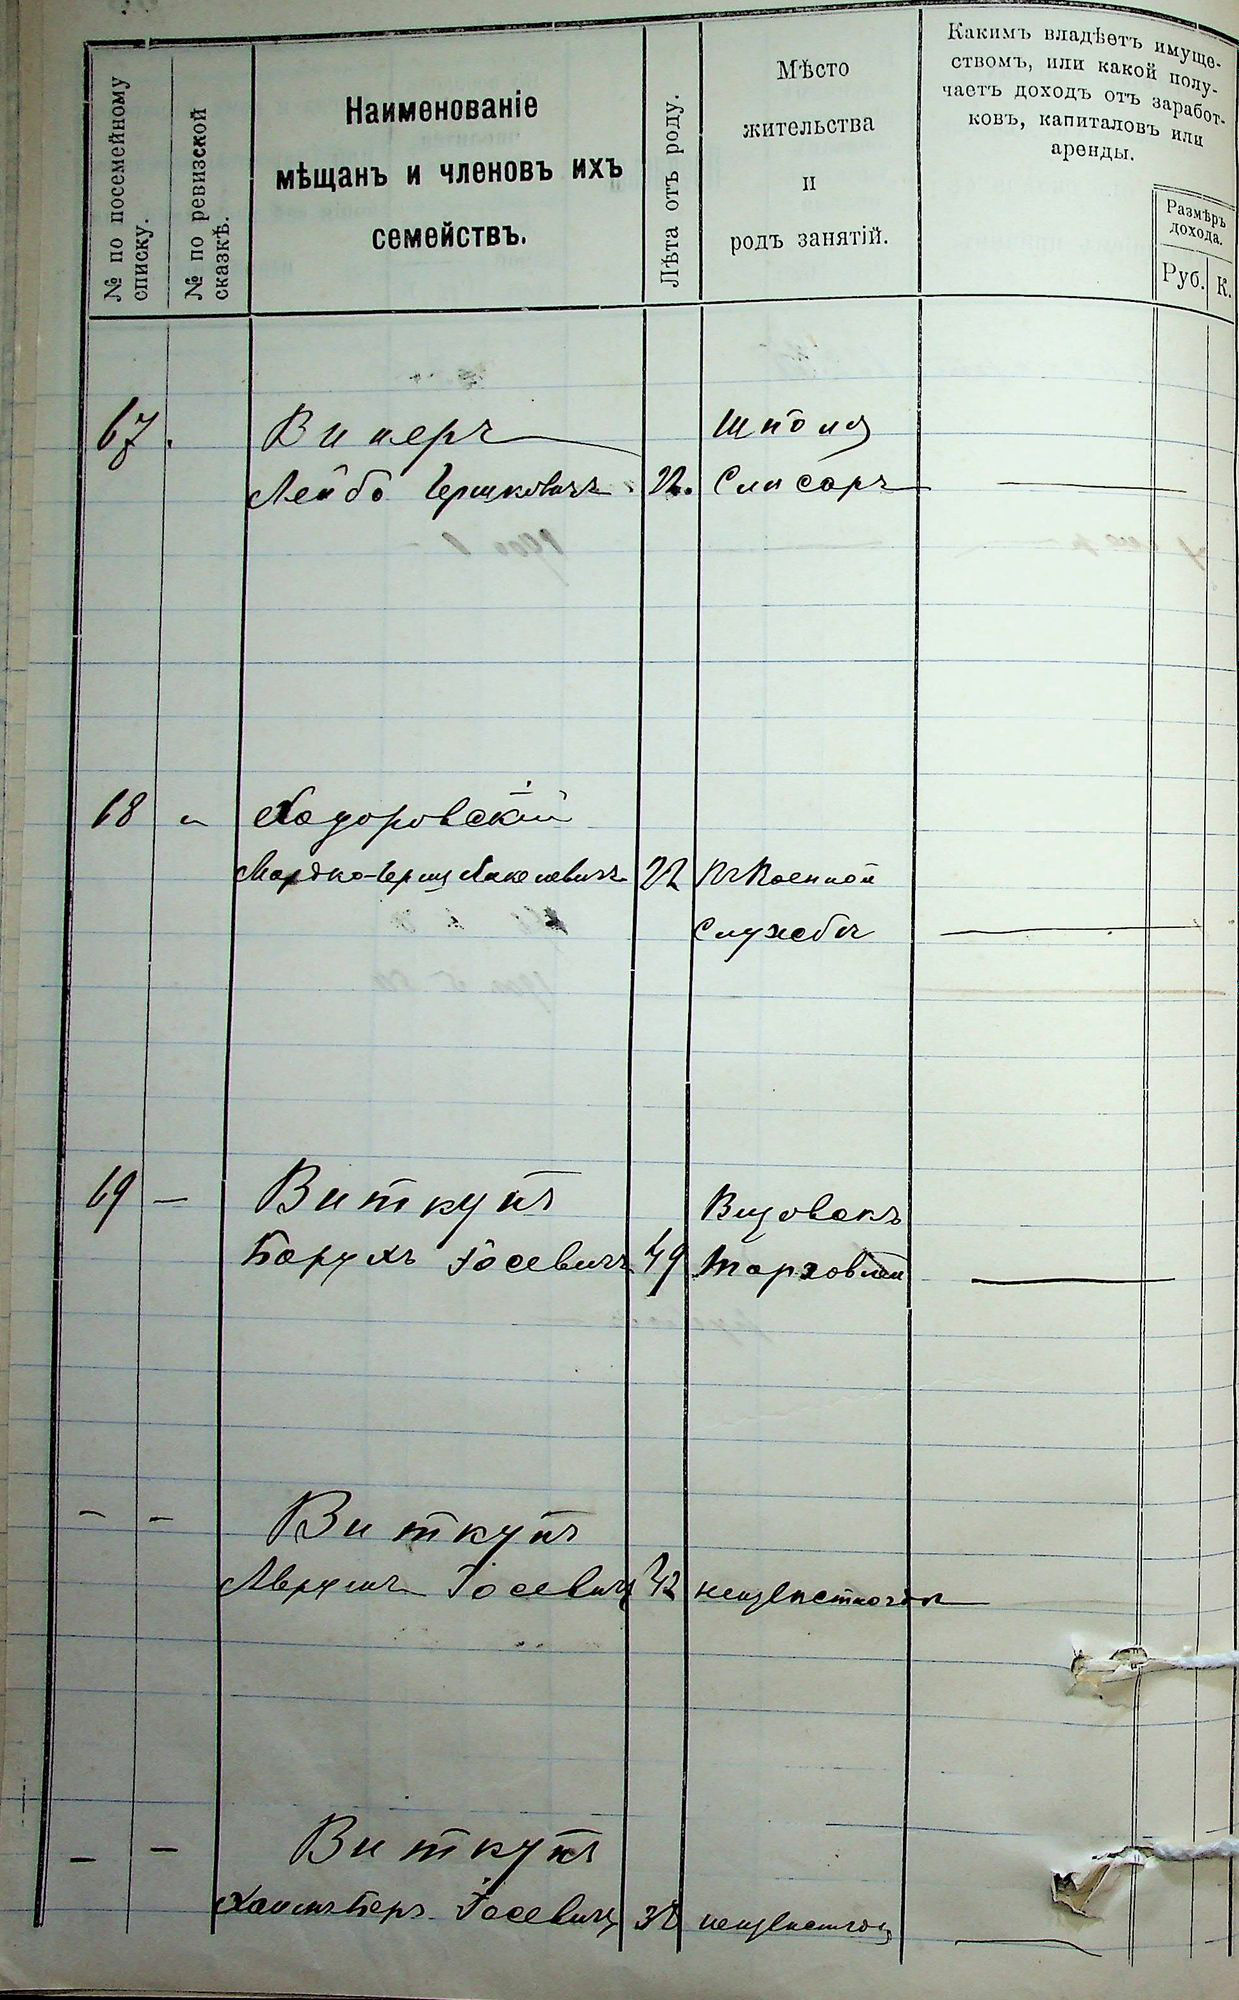 № по посемейному
списку.
№ по ревизской
сказкѣ.
Наименованіе
мѣщанъ и членовъ ихъ
семействъ.
Лѣта отъ роду.
Мѣсто
жительства
и
родъ занятій.
Какимъ владѣетъ имуще-
ствомъ, или какой полу-
чаетъ доходъ отъ заработ-
ковъ, капиталовъ или
аренды.
Размѣръ
дохода.
Руб. К.
67. Винеръ Шпола
Лейбо Гершковичъ 22. Слесарь
68 Ходоровскій
Мордко-Герш 22 Въ Военной
Службѣ
69 — Виткупъ
Борухъ Іосевичъ 49 Торговлей
- - Виткупъ
Аврумъ Іосевичъ 42
- - Виткупъ
Хаимъ Беръ Іосевичъ 38